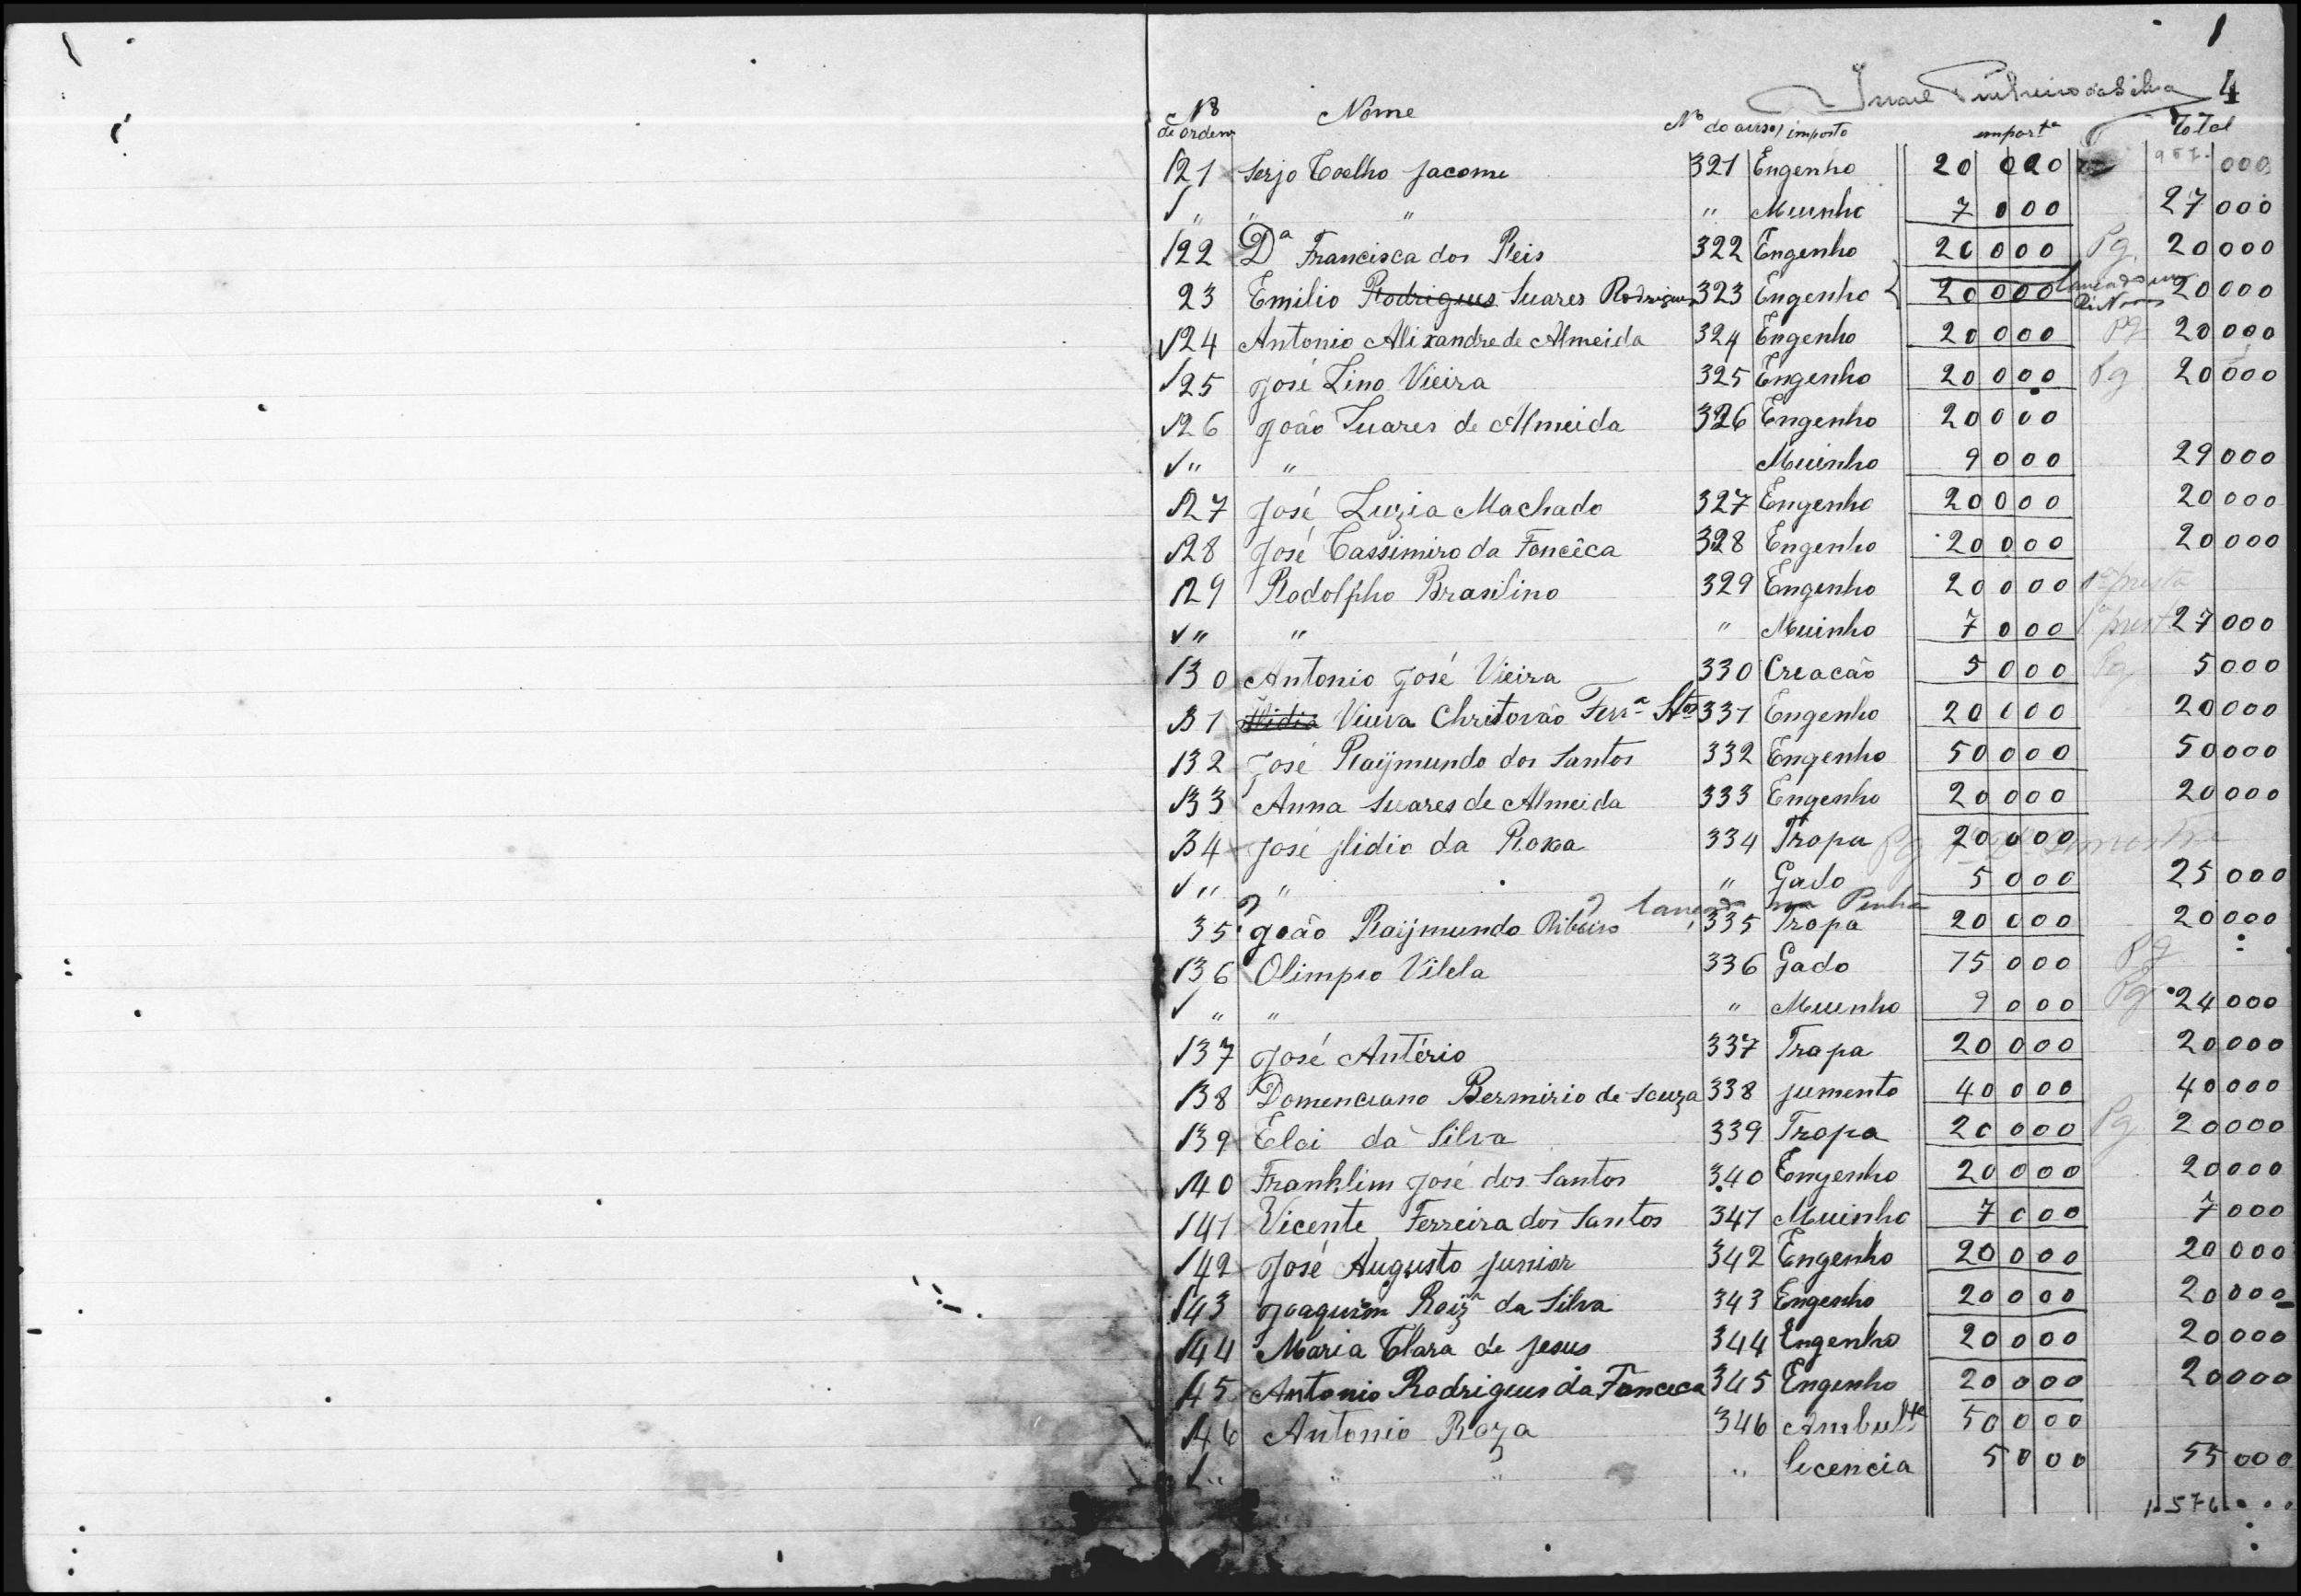 Israel Pinheiro da Silva 4
Nº de ordem Nome Nº do aviso imposto import.ª Total
121 Serjo Coelho Jacome 321 Engenho 20 000 957 000
" " " " Muinho 7 000 27 000
122 Dª Francisca dos Reis 322 Engenho 20 000 Pg 20 000
23 Emilio Rodrigues Suares Rodrigues 323 Engenho 20 000 20 000
124 Antonio Alixandre de Almeida 324 Engenho 20 000 Pg 20 000
125 José Lino Vieira 325 Engenho 20 000 Pg 20 000
126 João Suares de Almeida 326 Engenho 20 000
" " Muinho 9 000 29 000
127 José Luzia Machado 327 Engenho 20 000 20 000
128 José Cassimiro da Foncêca 328 Engenho 20 000 20 000
129 Rodolpho Brasilino 329 Engenho 20 000 1ª presta
" " " Muinho 7 000 1ª prest 27 000
130 Antonio José Vieira 330 Creacão 5 000 Pg 5 000
131 Viuva Chritovão Ferrª Stos 331 Engenho 20 000 20 000
132 José Raijmundo dos Santos 332 Engenho 50 000 50 000
133 Anna Suares de Almeida 333 Engenho 20 000 20 000
134 José Ilidio da Roxa 334 Tropa 20 000 Pg
" " " Gado 5 000 25 000
35 João Raijmundo Ribeiro 335 Tropa 20 000 20 000
136 Olimpio Vilela 336 Gado 15 000 Pg
" " " Muinho 9 000 Pg 24 000
137 José Antério 337 Tropa 20 000 20 000
138 Domenciano Bermirio de Souza 338 jumento 40 000 40 000
139 Eloi da Silva 339 Tropa 20 000 Pg 20 000
140 Franklim José dos Santos 340 Engenho 20 000 20 000
141 Vicente Ferreira dos Santos 341 Muinho 7 000 7 000
142 José Augusto Junior 342 Engenho 20 000 20 000
143 Joaquim Roizª da Silva 343 Engenho 20 000 20 000
144 Maria Clara de Jesus 344 Engenho 20 000 20 000
145 Antonio Rodrigues da Fonceca 345 Engenho 20 000 20 000
146 Antonio Roza 346 Ambultª 50 000
" " " " licencia 5 000 55 000
1.576.000